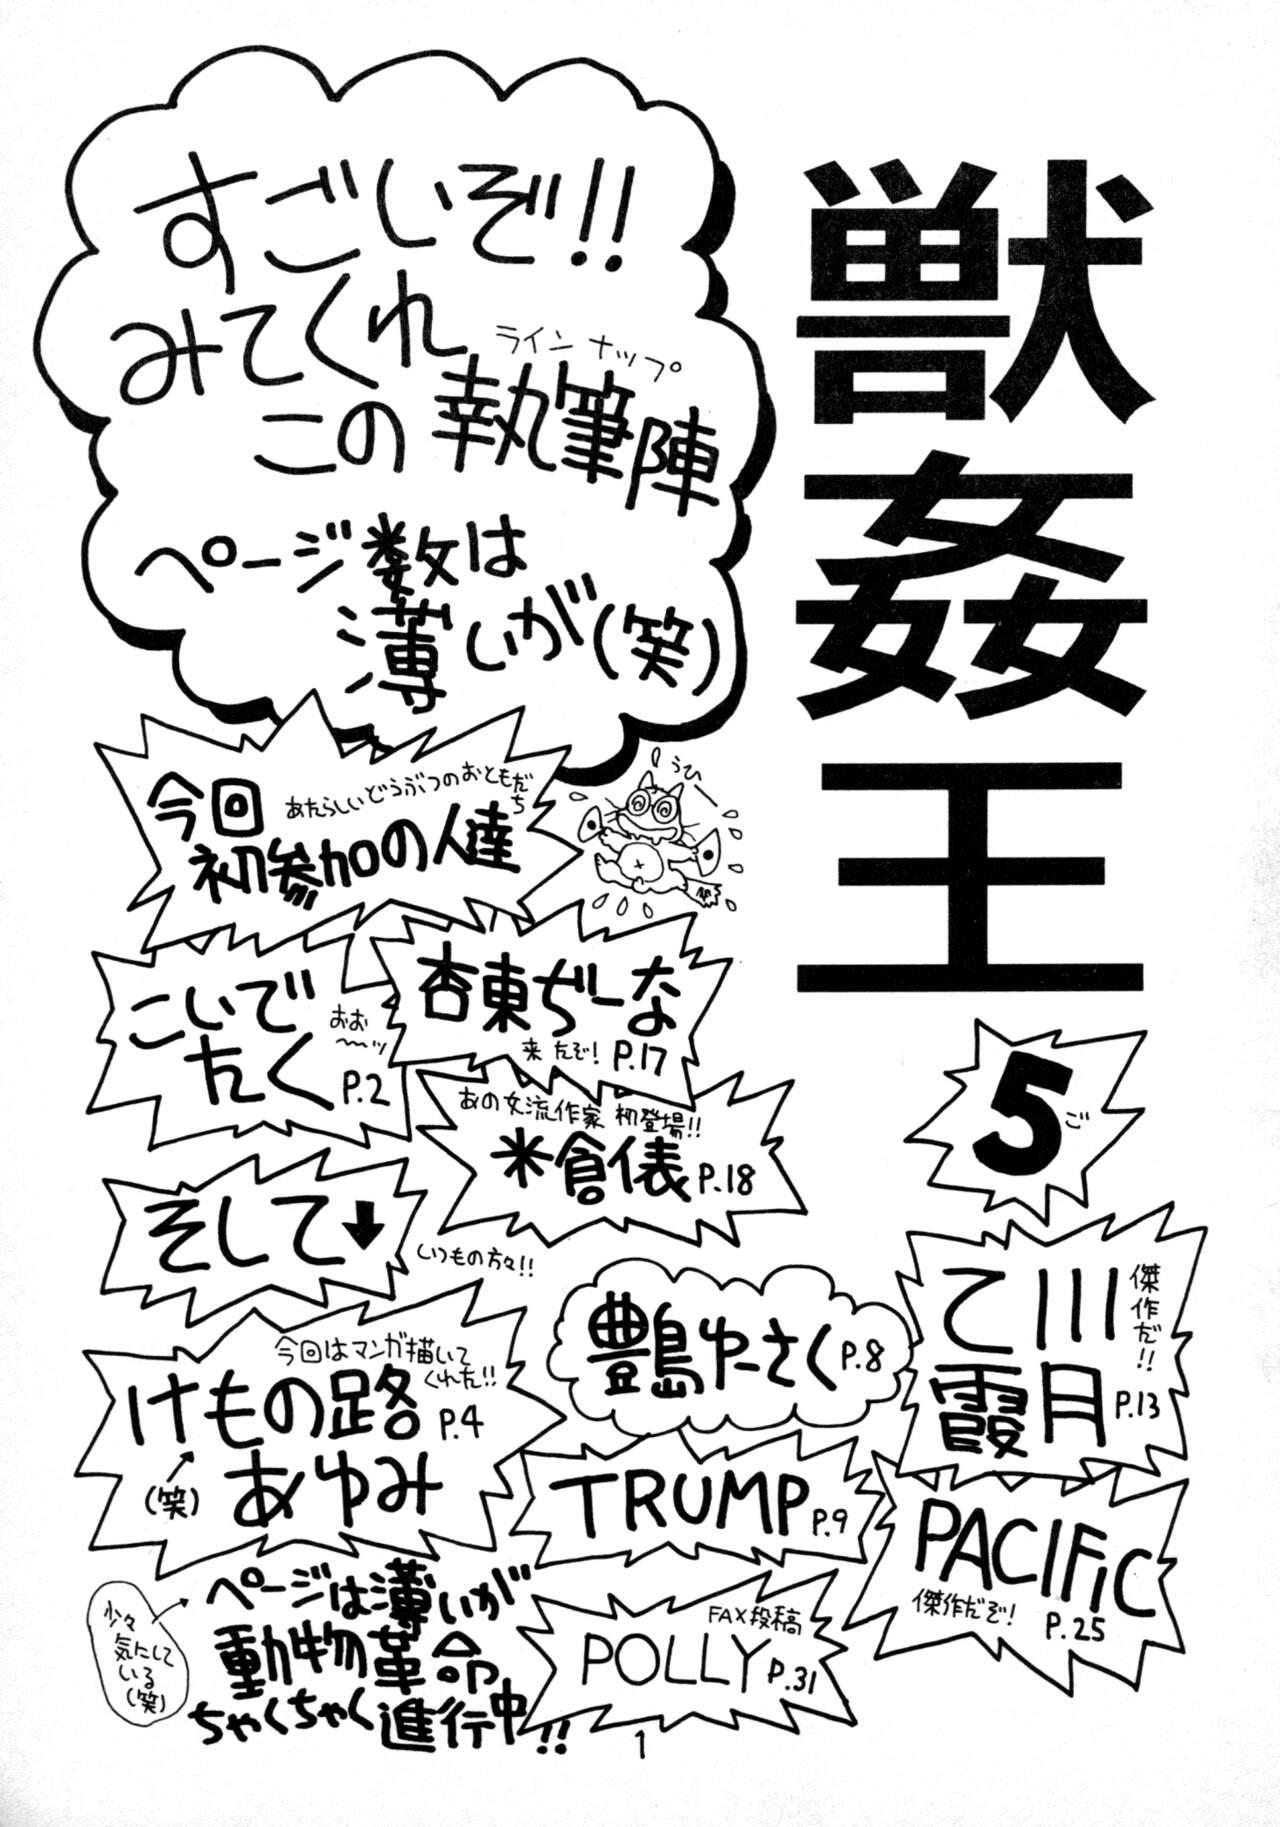 獣姦王
5
ご
すごいぞ!!
みてくれ
この執筆陣
ラインナップ
ページ数は
薄いが(笑)
うひー
今回
あたらしいどうぶつのおともだち
初参加の人達
こいで
たく
おお〜〜ッ
P.2
杏東ぢーな
来たぞ! P.17
あの女流作家 初登場!!
米倉俵 P.18
そして↓
いつもの方々!!
今回はマンガ描いて
くれた!!
けもの路 P.4
あゆみ
(笑)
豊島ゆーさく P.8
乙川
霞月 P.13
傑作だ!!
TRUMP P.9
PACIFiC
傑作だぞ! P.25
FAX投稿
POLLY P.31
ページは薄いが
動物革命
ちゃくちゃく進行中!!
少々
気にして
いる
(笑)
1